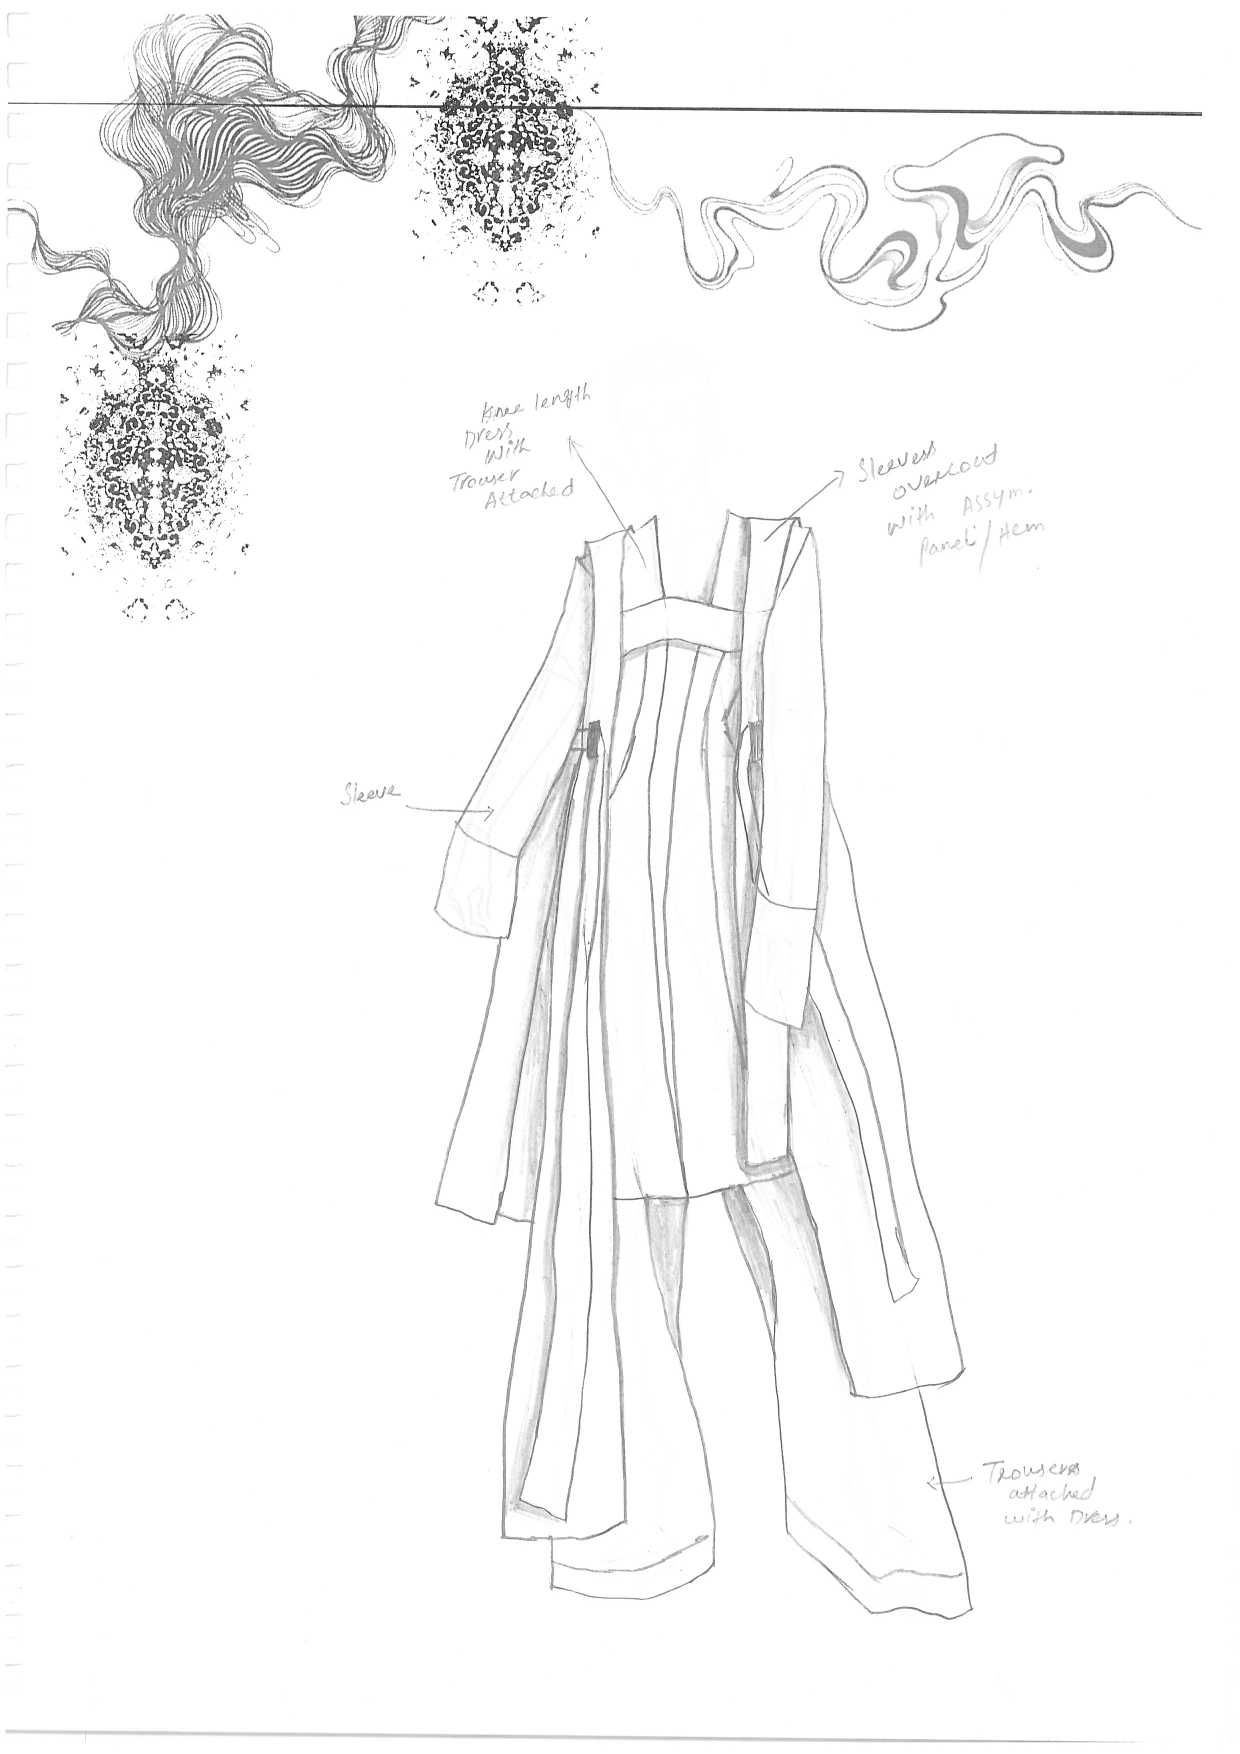 Knee length
Dress
With
Trouser
Attached
Sleevess
overcoat
with Assym.
Panel/Hem
Sleeve
Trousers
attached
with Dress.